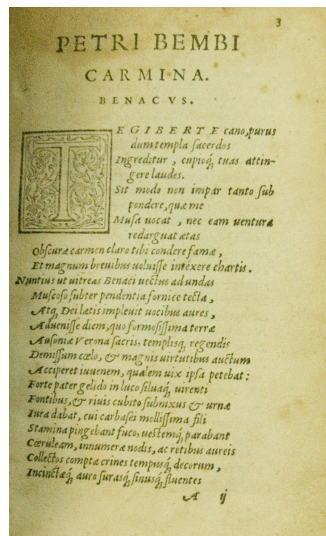 3
PETRI BEMBI
CARMINA.
BENACVS.
TE GIBERTE cano, purus
dum templa sacerdos
Ingreditur, cupioq́; tuas attin-
gere laudes.
Sit modo non impar tanto sub
pondere, quæ me
Musa uocat, nec eam uentura
redarguat ætas
Obscuræ carmen claro tibi condere famæ,
Et magnum breuibus uoluisse intexere chartis.
Nuntius ut uitreas Benaci uectus ad undas
Muscoso subter pendentia fornice tecta,
Atq; Dei latis impleuit uocibus aures,
Aduenisse diem, quo formosissima terræ
Ausoniæ Verona sacris, templisq́; regendis
Demissum cœlo, & magnis uirtutibus auctum
Acciperet iuuenem, qualem uix ipsa petebat:
Forte pater gelido in luco siluaq́; uirenti
Fontibus, & riuis cubito subnixus & urnæ
Iura dabat, cui carbasei mollissima fili
Stamina pingebant fuco, uestemq́; parabant
Cœruleam, innumeræ nodis, ac retibus aureis
Collectos comptæ crines tempusq́; decorum,
Incinctæq́; auro surasq́; sinusq́; fluentes
A ij